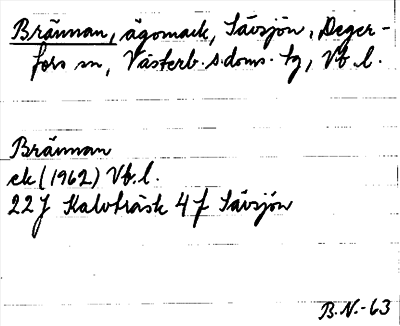 Brännan, ägomark, Sävsjön, Deger-
fors sn, Västerb. s. doms. tg, Vb. l.
Brännan
ek (1962) Vb. l.
22J Kalvträsk 4 f Sävsjön
B.N.-63